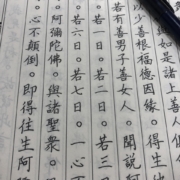 如是諸上善人俱
以少善根福德因緣。得生彼
若有善男子善女人。聞說阿
若一日。若二日。若三
若六日。若七日。一心
阿彌陀佛。與諸聖眾。
心不顛倒。即得往生阿